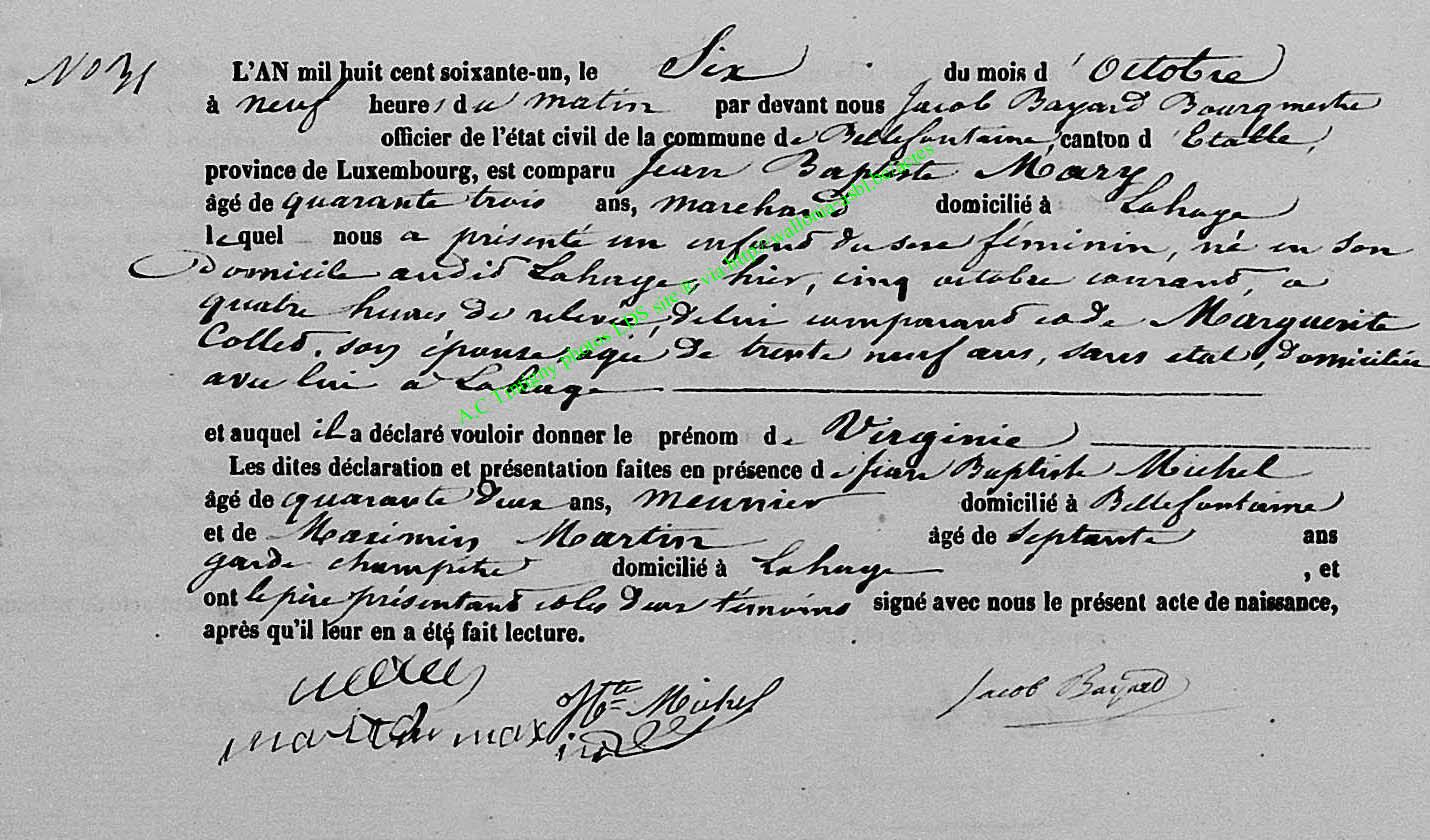 No 31
L'AN mil huit cent soixante-un, le Six du mois d'Octobre
à neuf heures du matin par devant nous Jacob Bayard Bourgmestre
officier de l'état civil de la commune de Bellefontaine, canton d'Etalle,
province de Luxembourg, est comparu Jean Baptiste Mary
âgé de quarante trois ans, marchand domicilié à Lahage
lequel nous a présenté un enfant du sexe féminin, né en son
Domicile audit Lahage, hier, cinq octobre courant, à
quatre heures de relevée, de lui comparant et de Marguerite
Collet, son épouse agée de trente neuf ans, sans etat, domiciliée
avec lui à Lahage
et auquel il a déclaré vouloir donner le prénom de Virginie
Les dites déclaration et présentation faites en présence de Jean Baptiste Michel
âgé de quarante deux ans, meunier domicilié à Bellefontaine
et de Maximin Martin âgé de septante ans
garde champêtre domicilié à Lahage, et
ont le père présentant et les deux témoins signé avec nous le présent acte de naissance,
après qu'il leur en a été fait lecture.
Michel
Jacob Bayard
A.C Tintigny photos LDS site & via http://wallonia-asbl.be/actes